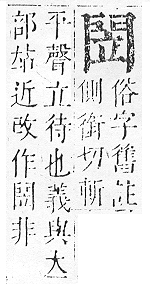 俗字舊註
側銜切斬
平聲立待也義與大
部站近改作非